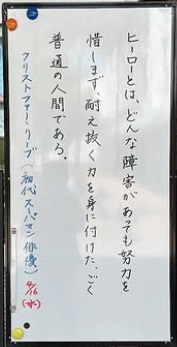 ヒーローとは、どんな障害があっても努力を
惜しまず、耐え抜く力を身に付けた、ごく
普通の人間である。
クリストファー・リーブ（初代スーパーマン俳優）4/16（水）